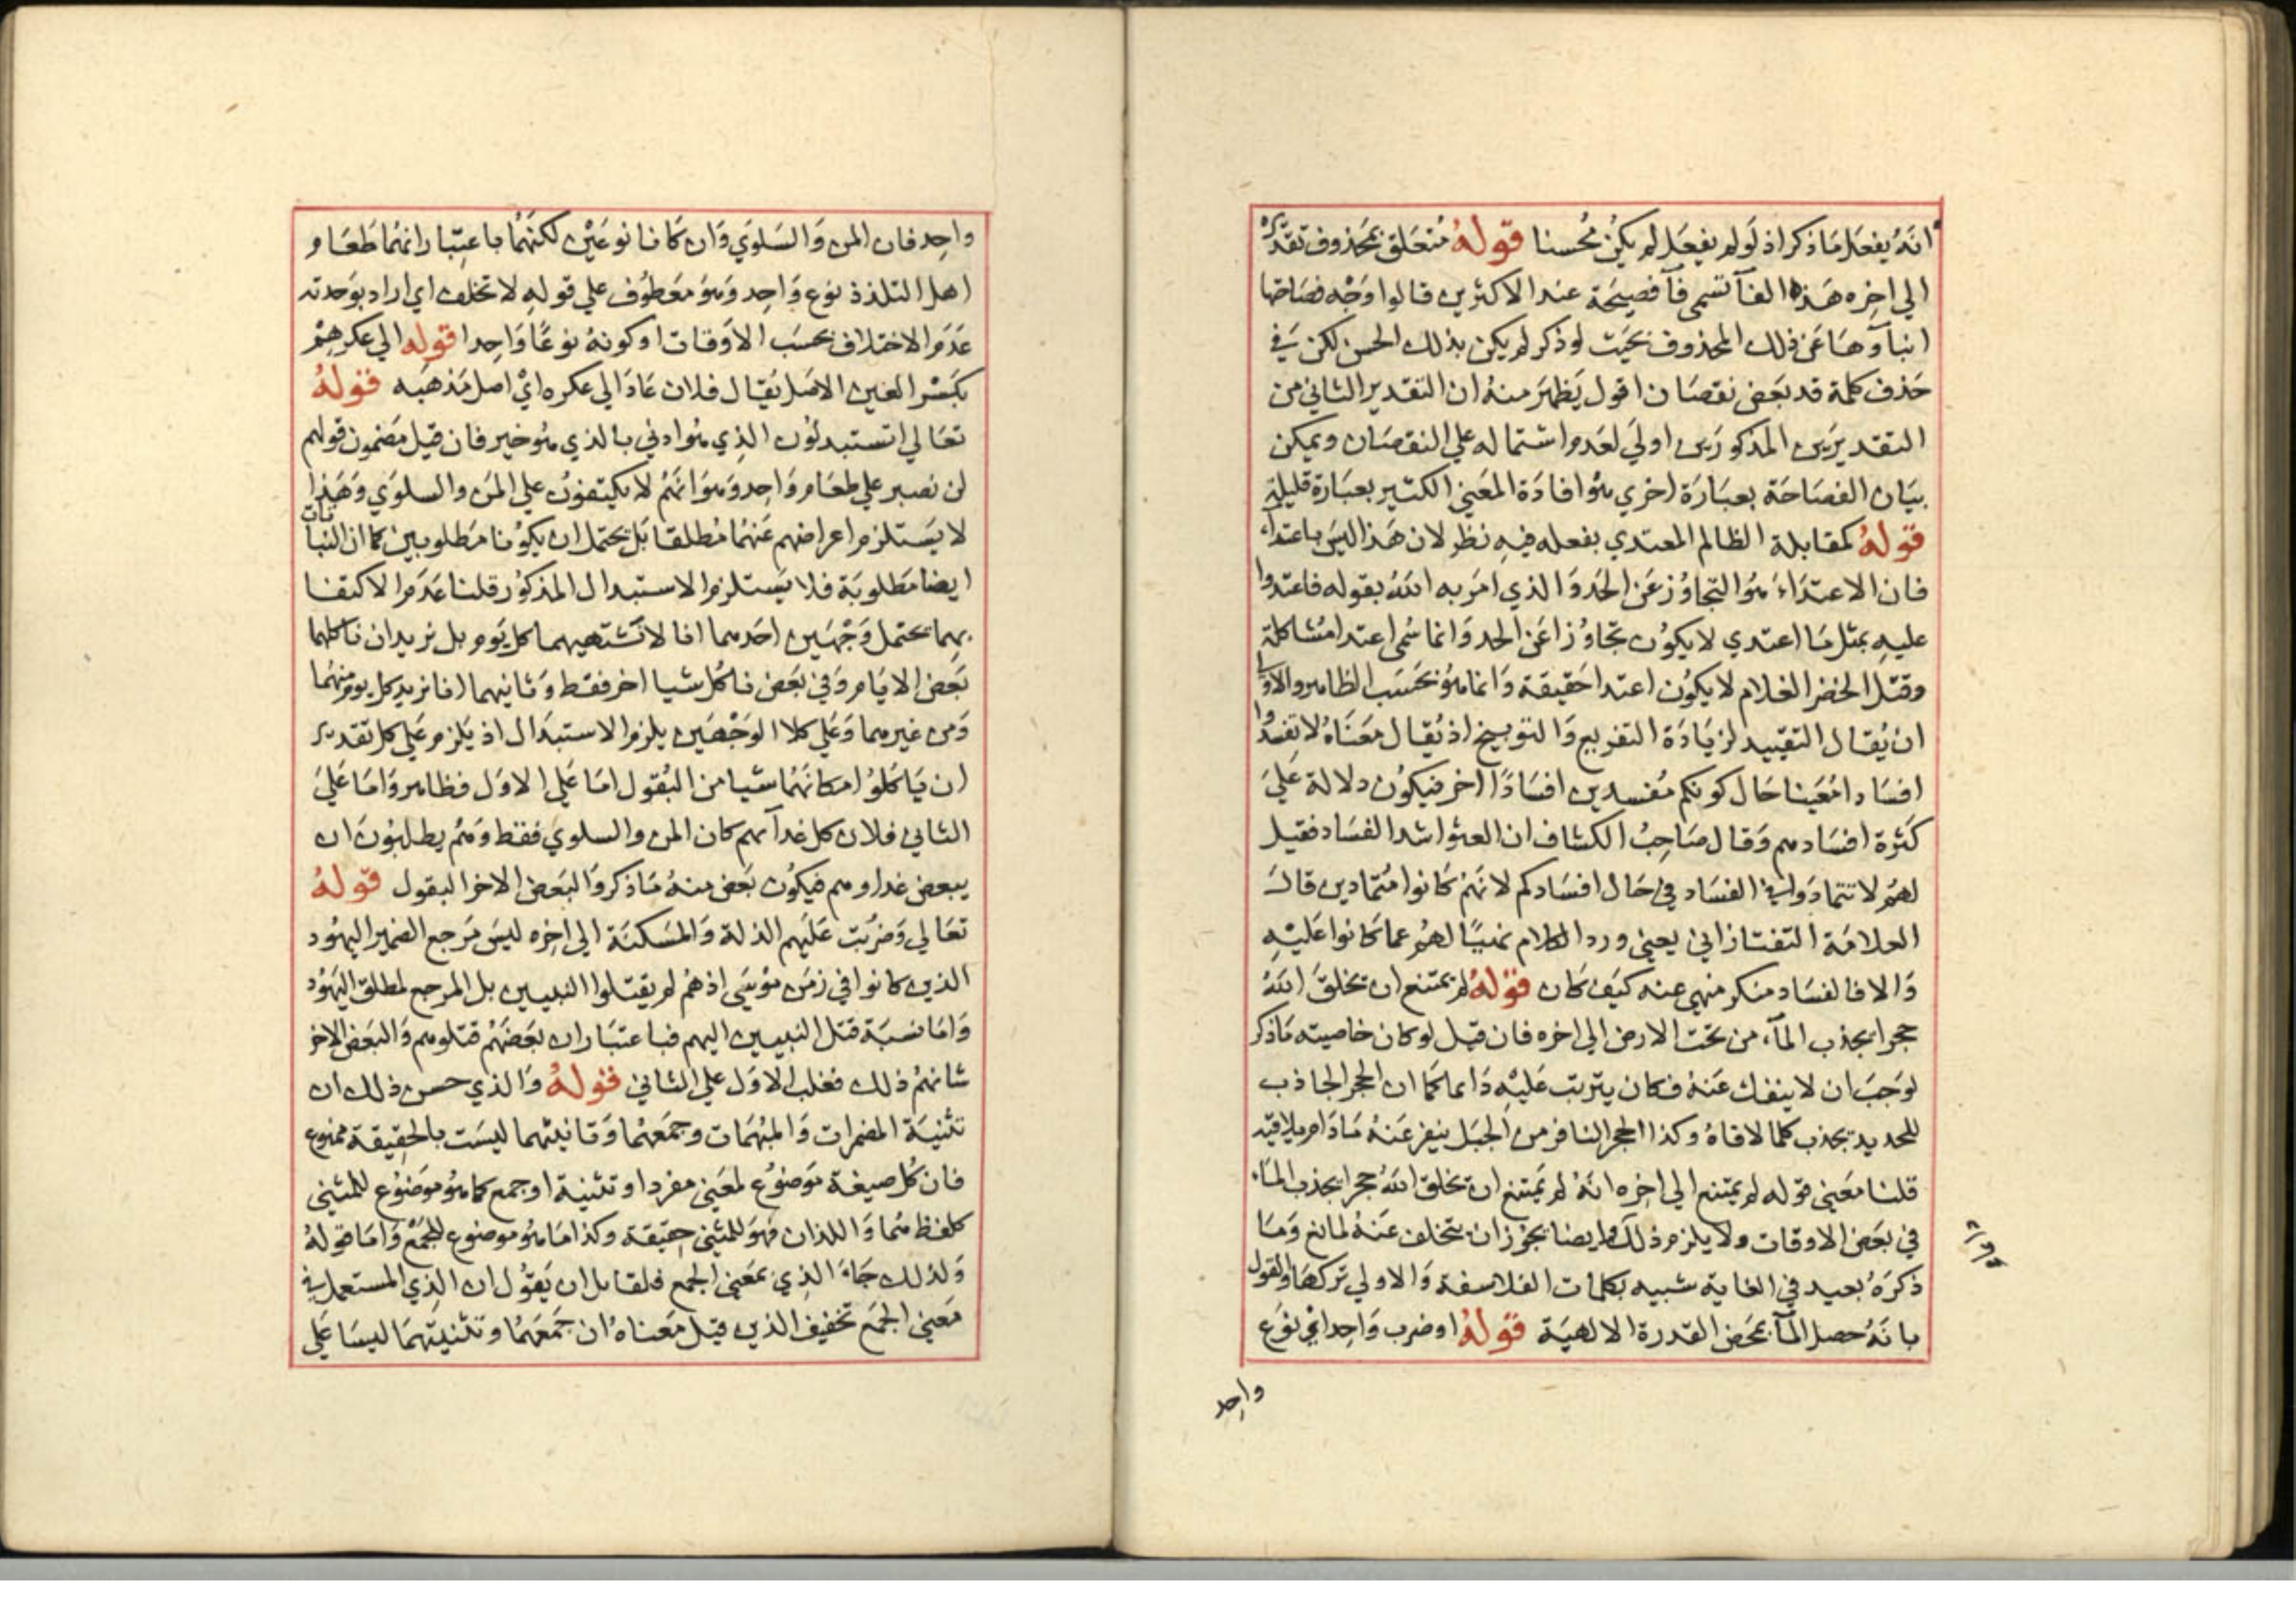 انه يفعل ما ذكر اذ لو لم يفعل لم يكن محسنا قوله متعلق بمحذوف تقديره
الي اخره هذه الفآ تسمى فآ فصيحة عند الاكثرين قالوا وجه فصاحتها
انبآوها عن ذلك المحذوف بحيث لو ذكر لم يكن بذلك الحسن لكن في
حذف كلمة قد بعض نقصان اقول يظهر منه ان التقدير الثاني من
التقديرين المذكورين اولي لعدم اشتماله علي النقصان ويمكن
بيان الفصاحة بعبارة اخري هو افادة المعني الكثير بعبارة قليلة
قوله كمقابلة الظالم المعتدي بفعله فيه نظر لان هذا ليس باعتداء
فان الاعتداء هو التجاوز عن الحد والذي امر به الله بقوله فاعتدوا
عليه بمثل ما اعتدي لا يكون تجاوزا عن الحد وانما سمى اعتدا مشاكلة
وقتل الخضر الغلام لا يكون اعتدا حقيقة وانما هو بحسب الظاهر والاولى
ان يقال التقييد لزيادة التقريع والتوبيخ اذ يقال معناه لا تفسدوا
افسادا معينا حال كونكم مفسدين افسادا اخر فيكون دلالة علي
كثرة افسادهم وقال صاحب الكشاف ان العثو اشد الفساد فقيل
لهم لا تتمادوا في الفساد في حال افسادكم لانهم كانوا متمادين قال
العلامة التفتازاني يعني ورد الكلام نهيا لهم عما كانوا عليه
والا فالفساد منكر منهي عنه كيف كان قوله لم يمتنع ان يخلق الله
حجرا يجذب المآء من تحت الارض الي اخره فان قيل لو كان خاصيته ما ذكر
لوجب ان لا ينفك عنه فكان يترتب عليه دايما كما ان الحجر الجاذب
للحديد يجذب كلما لاقاه وكذا الحجر النافر من الجبل ينفر عنه ما دام يلاقيه
قلنا معني قوله لم يمتنع الي اخره انه لم يمتنع ان يخلق الله حجرا يجذب الماء
في بعض الاوقات ولا يلزم ذلك وايضا يجوز ان يتخلف عنه لمانع وما
ذكره بعيد في الغاية شبيه بكلمات الفلاسفة والاولي تركها والقول
بانه حصل المآ بمحض القدرة الالهية قوله او ضرب واحد اي نوع
واحد
واحد فان المن والسلوي وان كانا نوعين لكنهما باعتبار انهما طعام
اهل التلذذ نوع واحد وهو معطوف علي قوله لا تختلف اي اراد بوحدته
عدم الاختلاف بحسب الاوقات او كونه نوعا واحدا قوله الي عكرهم
بكسر العين الاصل يقال فلان عاد الي عكره اي اصل مذهبه قوله
تعالي اتستبدلون الذي هو ادني بالذي هو خير فان قيل مضمون قولهم
لن نصبر علي طعام واحد وهو انهم لا يكتفون علي المن والسلوي وهذا
لا يستلزم اعراضهم عنهما مطلقا بل يحتمل ان يكونا مطلوبين كما ان النباتات
ايضا مطلوبة فلا يستلزم الاستبدال المذكور قلنا عدم الاكتفا
بهما يحتمل وجهين احدهما انا لا نشتهيهما كل يوم بل نريد ان ناكلهما
بعض الايام وفي بعض ناكل شيا اخر فقط وثانيهما انا نريد كل يوم منهما
ومن غيرهما وعلي كلا الوجهين يلزم الاستبدال اذ يلزم علي كل تقدير
ان ياكلوا مكانهما شيا من البقول اما علي الاول فظاهر واما علي
الثاني فلان كل غدآئهم كان المن والسلوي فقط وهم يطلبون ان
يبعض غداوهم فيكون بعض منه ما ذكر والبعض الاخر البقول قوله
تعالي وضربت عليهم الذلة والمسكنة الي اخره ليس مرجع الضمير اليهود
الذين كانوا في زمن موسي اذ هم لم يقتلوا النبيين بل المرجع لمطلق اليهود
واما نسبة قتل النبيين اليهم فباعتبار ان بعضهم قتلوهم والبعض الاخر
شانهم ذلك فغلب الاول علي الثاني قوله والذي حسن ذلك ان
تثنية المضمرات والمبهمات وجمعهما وتانيثهما ليست بالحقيقة ممنوع
فان كل صيغة موضوع لمعني مفرد او تثنية او جمع كما هو موضوع للمثني
كلفظ هما واللذان فهو للمثني حقيقة وكذا ما هو موضوع للجمع واما قوله
ولذلك جاء الذي بمعني الجمع فلقايل ان يقول ان الذي المستعمل في
معني الجمع تخفيف الذين قيل معناه ان جمعهما وتثنيتهما ليسا علي